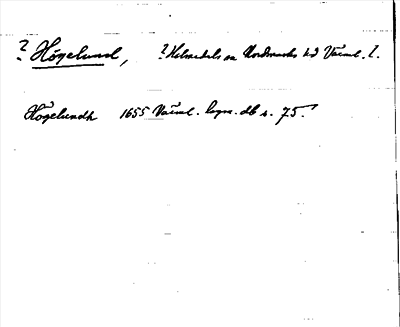 ? Högelund, ? Holmedals sn Nordmarks hd Värml. l.
Högelundh 1655 Värml. lagm. db s. 75.